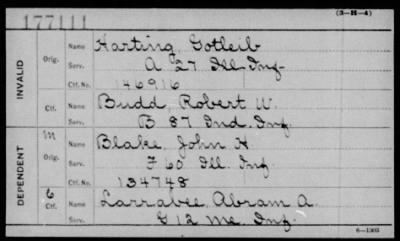 177111
(3-H-4)
INVALID
Orig.
Name Harting, Gotleib
Serv. A 27 Ill. Inf.
Ctf. No. 146916
Ctf.
Name Budd, Robert W.
Serv. B 87 Ind. Inf.
DEPENDENT
M
Orig.
Name Blake, John H.
Serv. F 60 Ill. Inf.
Ctf. No. 134748
Ctf.
Name Larrabee, Abram A.
Serv. G 12 Me. Inf.